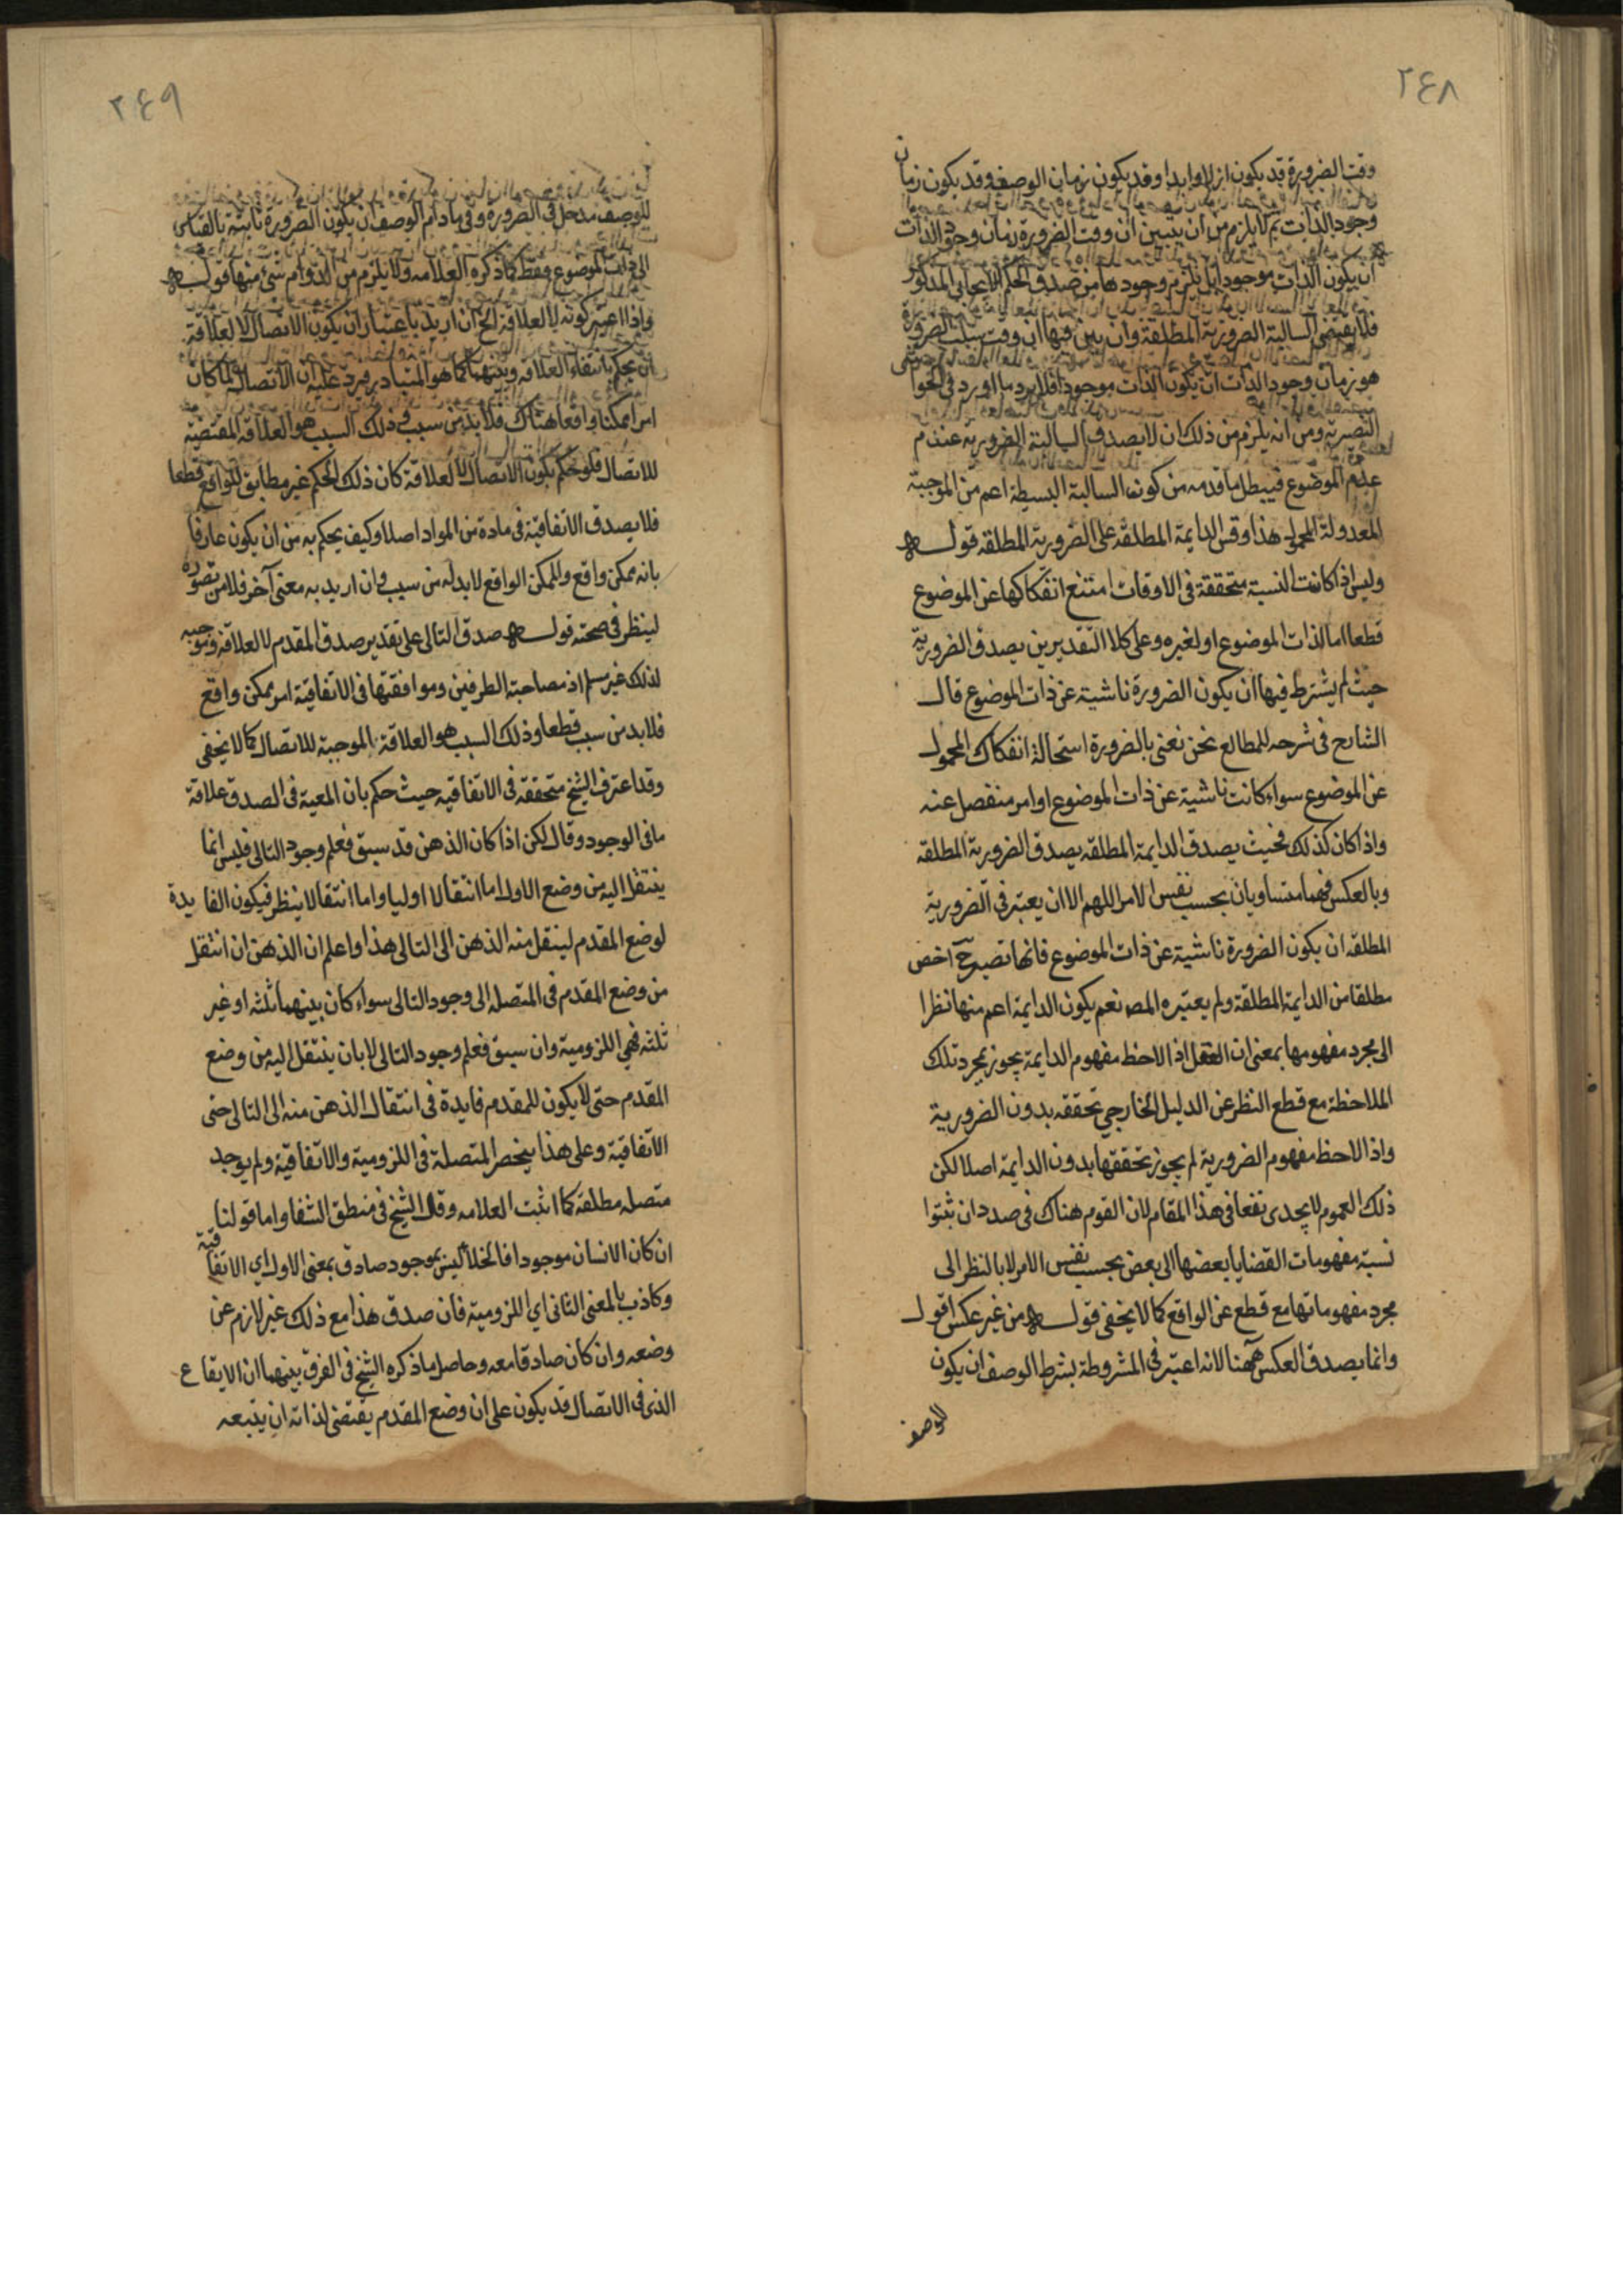 ٢٤٨
وقت الضرورة قد يكون ازلا وابدا وقد يكون زمان الوصف وقد يكون زمان
وجود الذات ثم لا يلزم من ان يتبين ان وقت الضرورة زمان وجود الذات
ان يكون الذات موجودا بل يلزم وجودها من صدق الحكم الايجابي المذكور
فلا يقتضي السالبة الضرورية المطلقة وان بين فيها ان وقت سلب الضرورة
هو زمان وجود الذات ان يكون الذات موجودا فلا يرد ما اورد في الحواشي
النصيرية ومن انه يلزم من ذلك ان لا يصدق السالبة الضرورية عند
عدم الموضوع فيبطل ما قدمه من كون السالبة البسيطة اعم من الموجبة
المعدولة المحمول هذا وقس الدايمة المطلقة على الضرورية المطلقة قوله
وليس اذا كانت النسبة متحققة في الاوقات امتنع انفكاكها عن الموضوع
قطعا اما لذات الموضوع او لغيره وعلى كلا التقديرين يصدق الضرورية
حيث لم يشترط فيها ان يكون الضرورة ناشية عن ذات الموضوع قال
الشارح في شرحه للمطالع نحن نعني بالضرورة استحالة انفكاك المحمول
عن الموضوع سواء كانت ناشية عن ذات الموضوع او امر منفصل عنه
واذا كان كذلك فحيث يصدق الدايمة المطلقة يصدق الضرورية المطلقة
وبالعكس فهما متساويان بحسب نفس الامر اللهم الا ان يعتبر في الضرورية
المطلقة ان يكون الضرورة ناشية عن ذات الموضوع فانها تصير ح اخص
مطلقا من الدايمة المطلقة ولم يعتبره المص نعم يكون الدايمة اعم منها نظرا
الى مجرد مفهومها بمعنى ان العقل اذا لاحظ مفهوم الدايمة يجوز بمجرد تلك
الملاحظة مع قطع النظر عن الدليل الخارجي تحققه بدون الضرورية
واذا لاحظ مفهوم الضرورية لم يجوز تحققها بدون الدايمة اصلا لكن
ذلك العموم لا يجدى نفعا في هذا المقام لان القوم هناك في صدد ان ثبتوا
نسبة مفهومات القضايا بعضها الى بعض بحسب نفس الامر لا بالنظر الى
مجرد مفهوماتها مع قطع عن الواقع كما لا يخفى قوله من غير عكس اقول
وانما يصدق العكس ههنا لانه اعتبر في المشروطة بشرط الوصف ان يكون
للوصف
٢٤٩
للوصف مدخل في الضرورة وفي مادام الوصف ان يكون الضرورة ثابتة بالقياس
الى ذات الموضوع فقط كما ذكره العلامه ولا يلزم من الدوام شئ منها قوله
واذا اعتبر كونه لا لعلاقة الخ ان اريد باعتبار ان يكون الاتصال لا لعلاقة
ان يحكم بانتفاء العلاقه وبينهما كما هو المتبادر فيرد عليه ان الاتصال لما كان
امرا ممكنا واقعا هناك فلا بد من سبب وذلك السبب هو العلاقة المقتضية
للاتصال فلو حكم بكون الاتصال لا لعلاقة كان ذلك الحكم غير مطابق للواقع قطعا
فلا يصدق الاتفاقية في مادة من المواد اصلا وكيف يحكم به من ان يكون عارفا
بانه ممكن واقع والممكن الواقع لا بد له من سبب وان اريد به معنى آخر فلا من تصوره
لينظر في صحته قوله صدق التالى على تقدير صدق المقدم لا لعلاقة وموجبه
لذلك غير مسلم اذ مصاحبة الطرفين وموافقتها في الاتفاقية امر ممكن واقع
فلا بد من سبب قطعا وذلك السبب هو العلاقة الموجبة للاتصال كما لا يخفى
وقد اعترف الشيخ متحققه في الاتفاقيه حيث حكم بان المعية في الصدق علاقة
ما في الوجود وقال لكن اذا كان الذهن قد سبق فعلم وجود التالى فليس انما
ينتقل اليه من وضع الاول اما انتقالا اوليا واما انتقالا ينظر فيكون الفايدة
لوضع المقدم لينتقل منه الذهن الى التالى هذا واعلم ان الذهن ان انتقل
من وضع المقدم في المتصله الى وجود التالى سواء كان بينهما ثلثه او غير
ثلثه فهي اللزومية وان سبق فعلم وجود التالى لا بان ينتقل اليه من وضع
المقدم حتى لا يكون للمقدم فايدة في انتقال الذهن منه الى التالى حتى
الاتفاقية وعلى هذا ينحصر المتصلة في اللزومية والاتفاقية ولم يوجد
متصله مطلقه كما اثبت العلامه وقال الشيخ في منطق الشفا واما قولنا
ان كان الانسان موجودا فالخلاء ليس بموجود صادق بمعنى الاول اي الاتفاقية
وكاذب بالمعنى الثاني اي اللزومية فان صدق هذا مع ذلك غير لازم عن
وضعه وان كان صادقا معه وحاصل ما ذكره الشيخ في الفرق بينهما ان الايقاع
الذي في الاتصال قد يكون على ان وضع المقدم يقتضى لذاته ان يتبعه